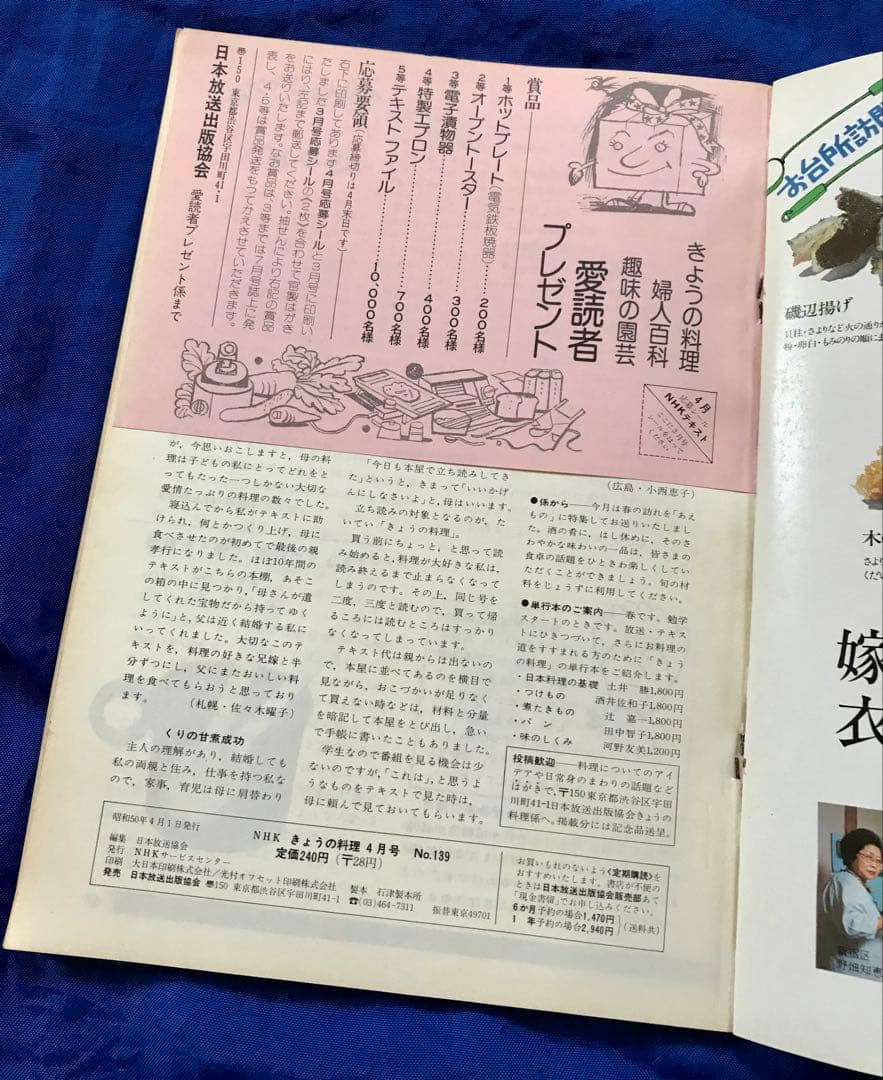 きょうの料理
婦人百科
趣味の園芸
愛読者
プレゼント
賞品
1等 ホットプレート(電気鉄板焼器)……200名様
2等 オーブントースター……300名様
3等 電子漬物器……300名様
4等 特製エプロン……400名様
5等 テキストファイル……700名様
10,000名様
応募要領(応募締切りは4月末日です)
右下に印刷してあります4月号応募シールと3月号に印刷い
たしました3月号応募シールの〈2枚〉を合わせて官製はがき
にはり、左記まで郵送してください。抽せんにより右記の賞品
をお送りいたします。なお賞品は、3等までは7月号誌上に発
表し、4・5等は賞品発送をもってかえさせていただきます。
〒150 東京都渋谷区宇田川町41-1
日本放送出版協会 愛読者プレゼント係まで
4月
応募シール
NHKテキスト
ここに3月号
シールをはって
ください
が、今思いおこしますと、母の料
理は子どもの私にとってどれをと
ってもたった一つしかない大切な
愛情たっぷりの料理の数々でした。
寝込んでから私がテキストに助
けられ、何とかつくり上げ、母に
食べさせたのが初めてで最後の親
孝行になりました。ほぼ10年間の
テキストがこちらの本棚、あそこ
の箱の中に見つかり、「母さんが遺
してくれた宝物だから持ってゆく
ように」と、父は近く結婚する私に
いってくれました。大切なこのテ
キストを、料理の好きな兄嫁と半
分ずつにし、父にまたおいしい料
理を食べてもらおうと思っており
ます。
(札幌・佐々木曜子)
くりの甘煮成功
主人の理解があり、結婚しても
私の両親と住み、仕事を持つ私な
ので、家事、育児は母に肩替わり
「今日も本屋で立ち読みしてき
た」というと、きまって「いいかげ
んにしなさいよ」と、母はいいます。
立ち読みの対象となるのが、た
いてい「きょうの料理」。
買う前にちょっと、と思って読
み始めると、料理が大好きな私は、
読み終えるまで止まらなくなって
しまうのです。その上、同じ号を
二度、三度と読むので、買って帰
るころには読むところはすっかり
なくなってしまっています。
テキスト代は親からは出ないの
で、本屋に並べてあるのを横目で
見ながら、おこづかいが足りなく
て買えない時などは、材料と分量
を暗記して本屋をとび出し、急い
で手帳に書いたこともありました。
学生なので番組を見る機会は少
ないのですが、「これは」、と思うよ
うなものをテキストで見た時は、
母に頼んで見ておいてもらいます。
(広島・小西恵子)
●係から——今月は春の訪れを「あえ
もの」に特集してお送りいたしまし
た。酒の肴に、はし休めに、そのさ
わやかな味わいの一品は、皆さまの
食卓の話題をひときわ楽しくしてい
ただくことができましょう。旬の材
料をじょうずに利用してください。
●単行本のご案内——春です。勉学
スタートのときです。放送・テキス
トにひきつづいて、さらにお料理の
道をすすまれる方のために「きょう
の料理」の単行本をご紹介します。
・日本料理の基礎 土井 勝1,800円
・つけもの 酒井佐和子1,800円
・煮たきもの 辻 嘉一1,800円
・パン 田中智子1,800円
・味のしくみ 河野友美1,200円
投稿歓迎——料理についてのアイ
デアや日常身のまわりの話題など
はがきで、〒150東京都渋谷区宇田
川町41-1日本放送出版協会きょうの
料理係へ。掲載分には記念品送呈。
昭和50年4月1日発行
NHK きょうの料理 4月号 No.139
定価240円(〒28円)
編集 日本放送協会
発行 NHKサービスセンター
印刷 大日本印刷株式会社/光村オフセット印刷株式会社 製本 石津製本所
発売 日本放送出版協会 〒150 東京都渋谷区宇田川町41-1 ☎(03)464-7311 振替東京49701
お買いもれのないよう〈定期購読〉を
おすすめいたします。書店が不便の
ときは日本放送出版協会販売部あて
「現金書留」でお申し込みください。
6か月予約の場合1,470円
1年予約の場合2,940円
(送料共)
お台所訪問
磯辺揚げ
貝柱・さよりなど火の通り
粉・卵白・もみのりの順に
木の
さより
くだい
嫁
衣
新宿区
野畑知恵